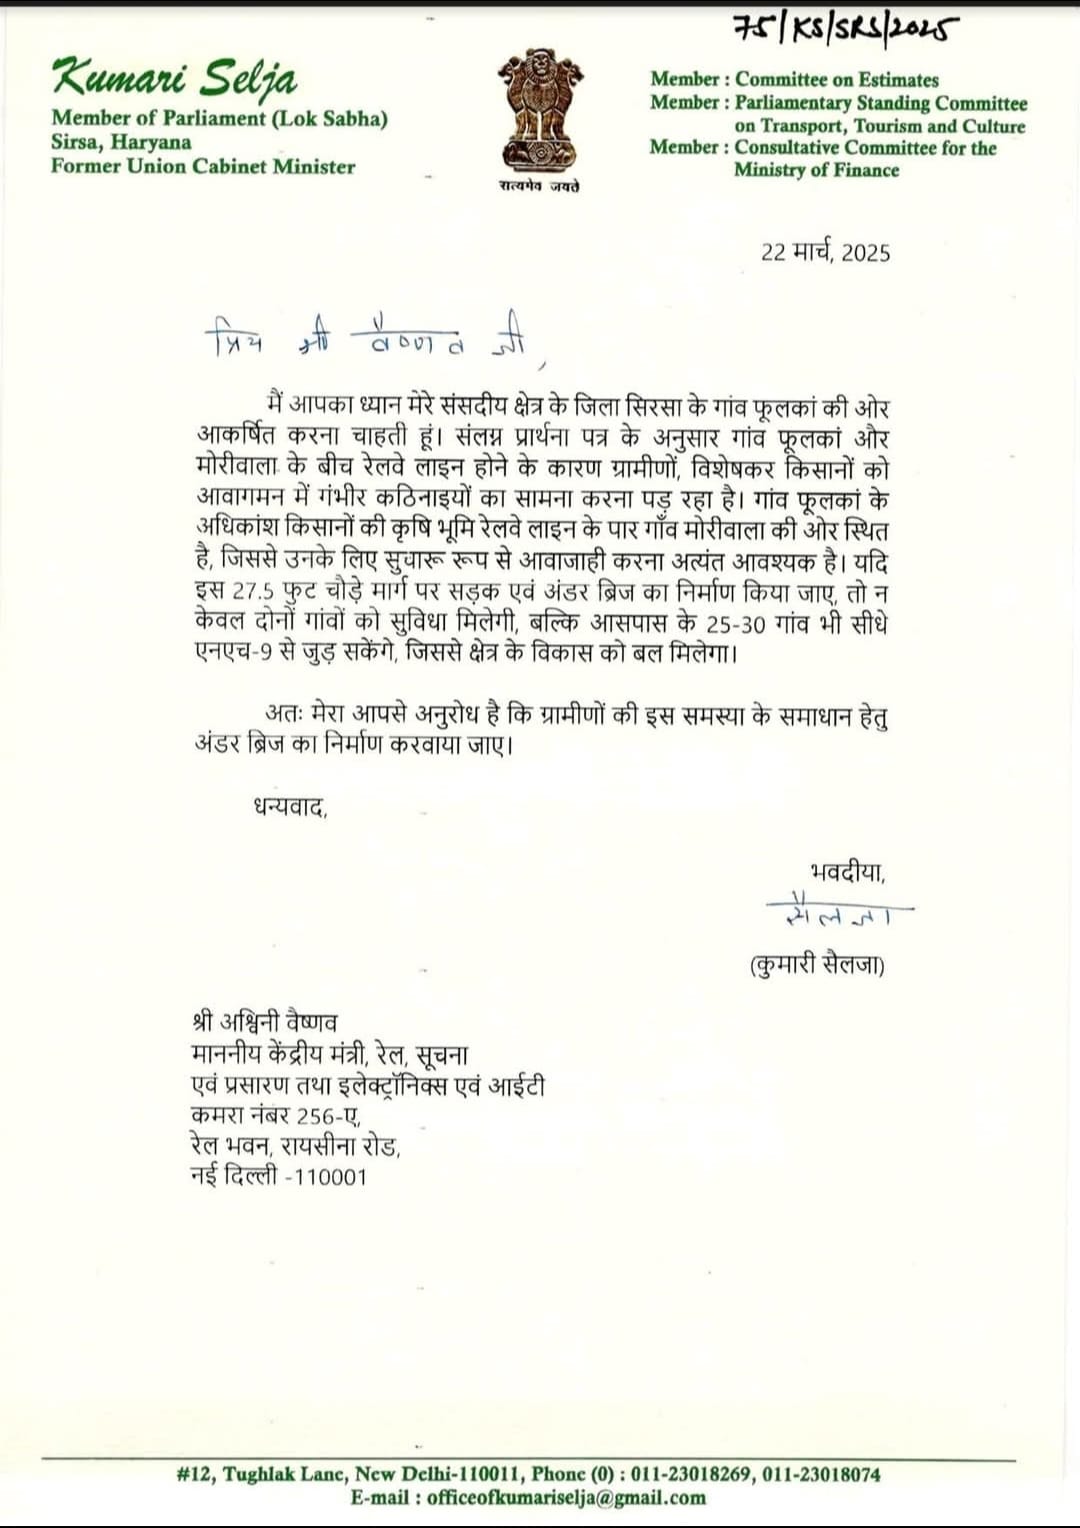 75/KS/SRS/2025
Kumari Selja
Member of Parliament (Lok Sabha)
Sirsa, Haryana
Former Union Cabinet Minister
सत्यमेव जयते
Member : Committee on Estimates
Member : Parliamentary Standing Committee
on Transport, Tourism and Culture
Member : Consultative Committee for the
Ministry of Finance
22 मार्च, 2025
प्रिय श्री वैष्णव जी,
मैं आपका ध्यान मेरे संसदीय क्षेत्र के जिला सिरसा के गांव फूलकां की ओर
आकर्षित करना चाहती हूं। संलग्न प्रार्थना पत्र के अनुसार गांव फूलकां और
मोरीवाला के बीच रेलवे लाइन होने के कारण ग्रामीणों, विशेषकर किसानों को
आवागमन में गंभीर कठिनाइयों का सामना करना पड़ रहा है। गांव फूलकां के
अधिकांश किसानों की कृषि भूमि रेलवे लाइन के पार गाँव मोरीवाला की ओर स्थित
है, जिससे उनके लिए सुचारू रूप से आवाजाही करना अत्यंत आवश्यक है। यदि
इस 27.5 फुट चौड़े मार्ग पर सड़क एवं अंडर ब्रिज का निर्माण किया जाए, तो न
केवल दोनों गांवों को सुविधा मिलेगी, बल्कि आसपास के 25-30 गांव भी सीधे
एनएच-9 से जुड़ सकेंगे, जिससे क्षेत्र के विकास को बल मिलेगा।
अतः मेरा आपसे अनुरोध है कि ग्रामीणों की इस समस्या के समाधान हेतु
अंडर ब्रिज का निर्माण करवाया जाए।
धन्यवाद,
भवदीया,
सैलजा
(कुमारी सैलजा)
श्री अश्विनी वैष्णव
माननीय केंद्रीय मंत्री, रेल, सूचना
एवं प्रसारण तथा इलेक्ट्रॉनिक्स एवं आईटी
कमरा नंबर 256-ए,
रेल भवन, रायसीना रोड,
नई दिल्ली -110001
#12, Tughlak Lane, New Delhi-110011, Phone (0) : 011-23018269, 011-23018074
E-mail : officeofkumariselja@gmail.com